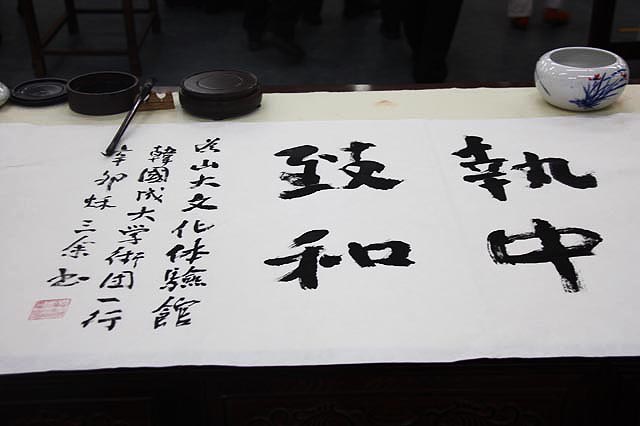 執中
致和
山大文化体驗館
韓國成大学術团一行
辛卯秋三余书